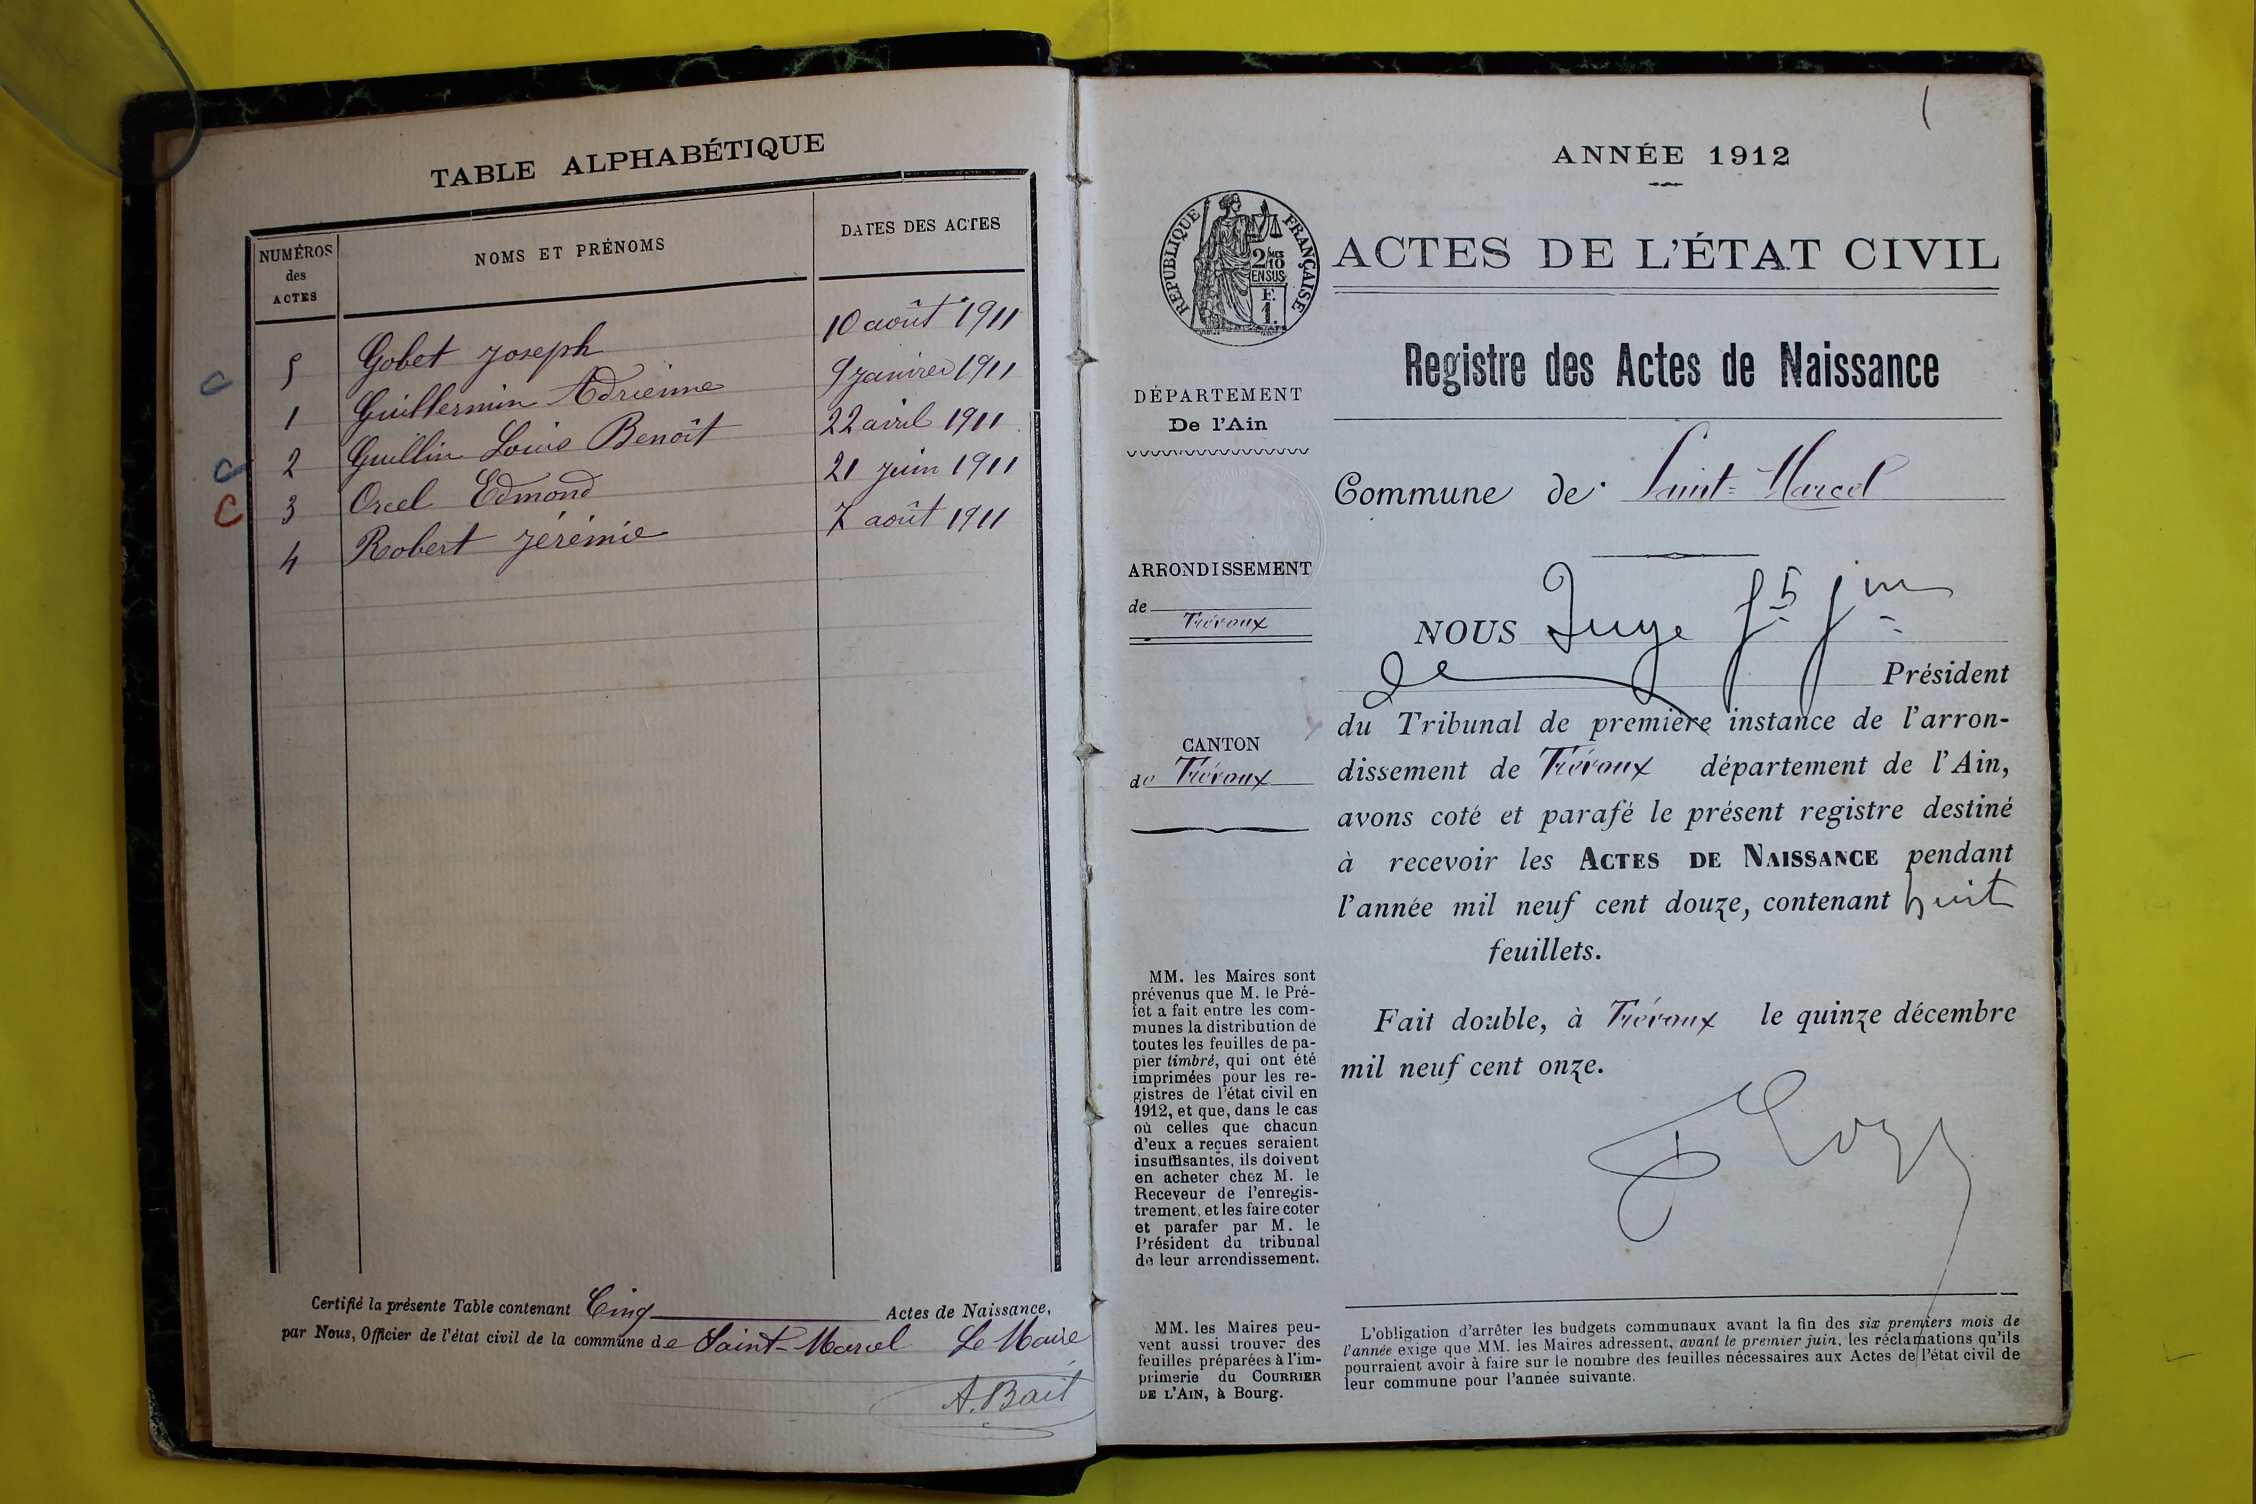 TABLE ALPHABÉTIQUE
NUMÉROS
des
ACTES
NOMS ET PRÉNOMS
DATES DES ACTES
5 Gobet Joseph 10 août 1911
1 Guillermin Adrienne 9 janvier 1911
C 2 Guillin Louis Benoît 22 avril 1911
C 3 Orcel Edmond 21 juin 1911
4 Robert Jérémie 7 août 1911
Certifié la présente Table contenant Cinq Actes de Naissance,
par Nous, Officier de l'état civil de la commune de Saint-Marcel Le Maire
A. Bait
ANNÉE 1912
RÉPUBLIQUE FRANÇAISE
2/10
EN SUS
F.
1.
ACTES DE L'ÉTAT CIVIL
Registre des Actes de Naissance
DÉPARTEMENT
De l'Ain
ARRONDISSEMENT
de
Trévoux
CANTON
de Trévoux
MM. les Maires sont
prévenus que M. le Pré-
fet a fait entre les com-
munes la distribution de
toutes les feuilles de pa-
pier timbré, qui ont été
imprimées pour les re-
gistres de l'état civil en
1912, et que, dans le cas
où celles que chacun
d'eux a reçues seraient
insuffisantes, ils doivent
en acheter chez M. le
Receveur de l'enregis-
trement, et les faire coter
et parafer par M. le
Président du tribunal
de leur arrondissement.
MM. les Maires peu-
vent aussi trouver des
feuilles préparées à l'im-
primerie du COURRIER
DE L'AIN, à Bourg.
Commune de Saint-Marcel
NOUS Juge
de Président
du Tribunal de première instance de l'arron-
dissement de Trévoux département de l'Ain,
avons coté et parafé le présent registre destiné
à recevoir les ACTES DE NAISSANCE pendant
l'année mil neuf cent douze, contenant huit
feuillets.
Fait double, à Trévoux le quinze décembre
mil neuf cent onze.
L'obligation d'arrêter les budgets communaux avant la fin des six premiers mois de
l'année exige que MM. les Maires adressent, avant le premier juin, les réclamations qu'ils
pourraient avoir à faire sur le nombre des feuilles nécessaires aux Actes de l'état civil de
leur commune pour l'année suivante.